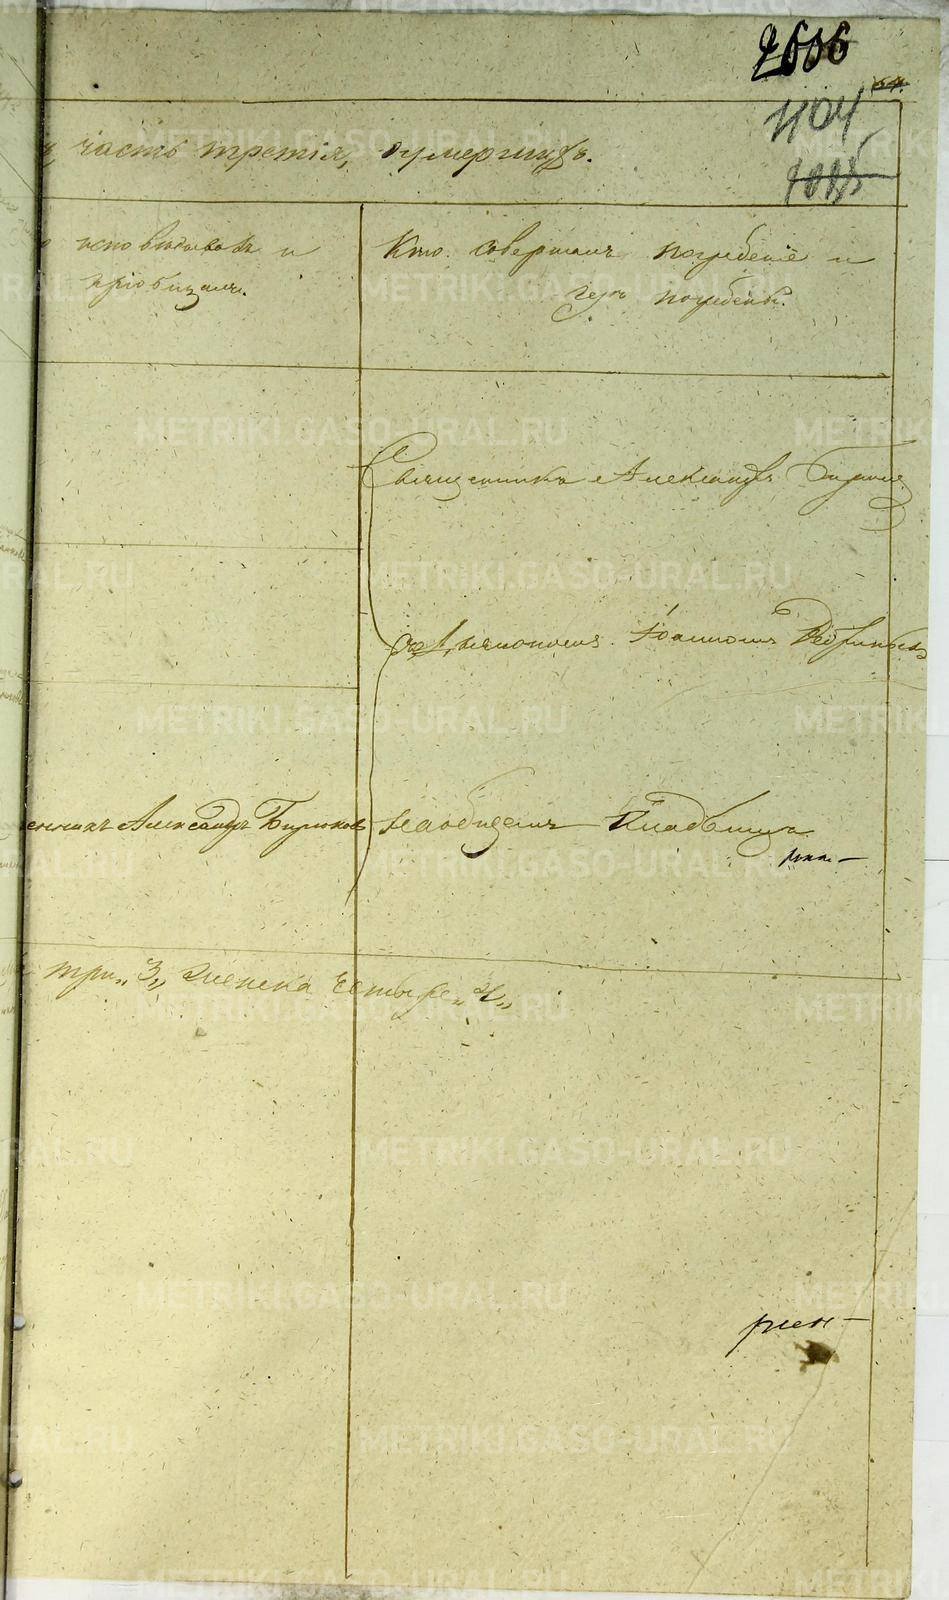 2606
64.
1104
1085
часть третія, о умершихъ.
исповѣдывалъ и
пріобщалъ.
Кто совершалъ погребеніе и
гдѣ погребены.
Священникъ Александръ Бирюковъ
съ Дьякономъ Іоанномъ
Александръ Бирюковъ
на общемъ Кладбищѣ
три „3„ женска четыре „4„
METRIKI.GASO-URAL.RU